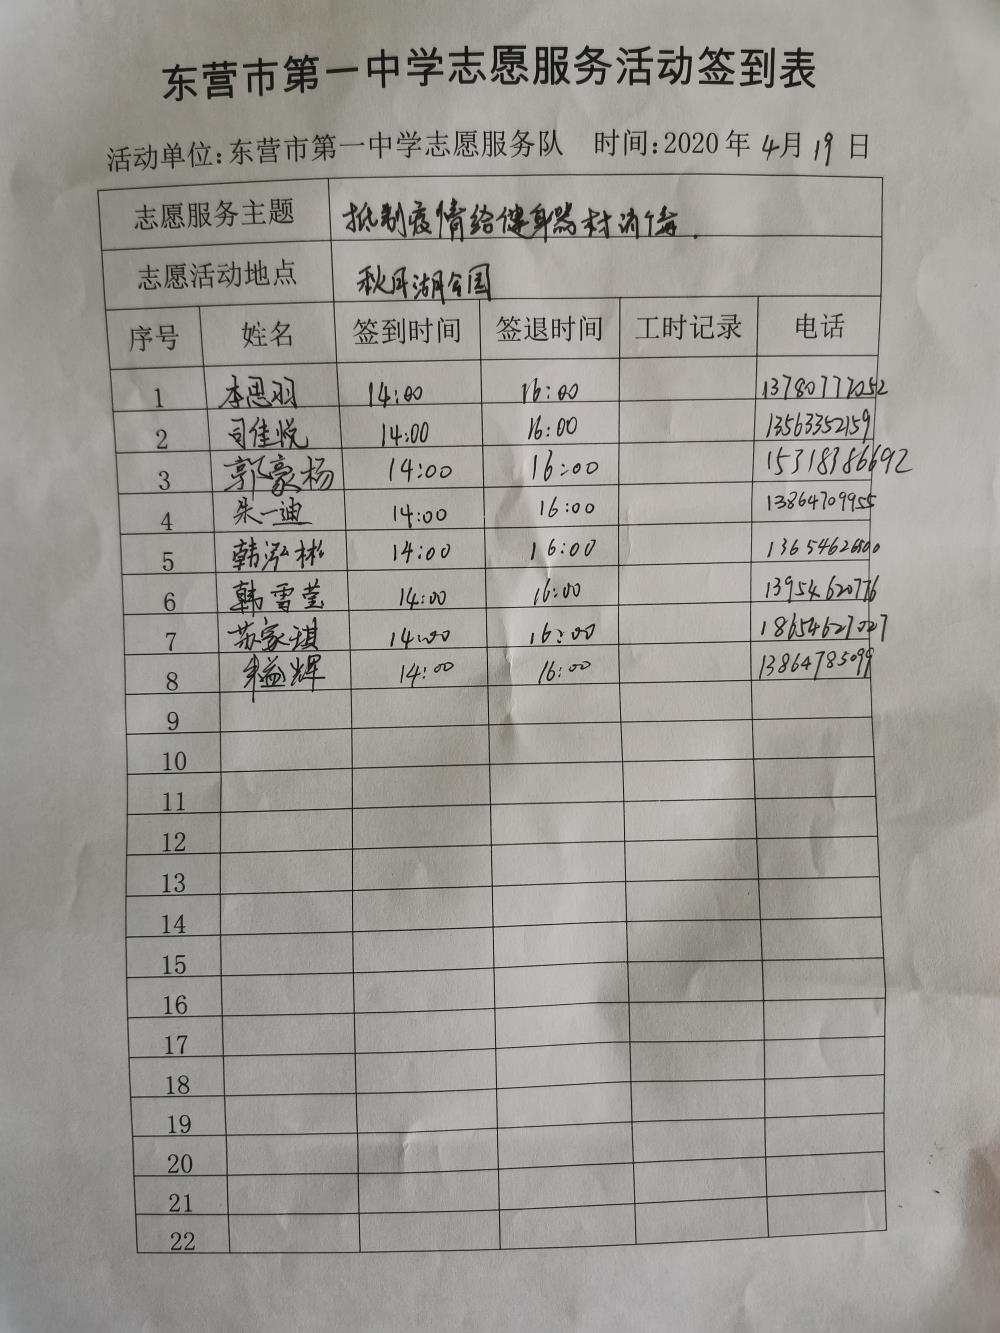 东营市第一中学志愿服务活动签到表
活动单位:东营市第一中学志愿服务队 时间:2020年4月19日
志愿服务主题 抵制疫情给健身器材消毒.
志愿活动地点 秋月湖公园
序号 姓名 签到时间 签退时间 工时记录 电话
1 李思羽 14:00 16:00 13780777052
2 司佳悦 14:00 16:00 13563352159
3 郭豪杨 14:00 16:00 15318386692
4 朱一迪 14:00 16:00 13864709955
5 韩泓彬 14:00 16:00
6 韩雪莹 14:00 16:00 13954620776
7 苏家琪 14:00 16:00 18654627027
8 14:00 16:00 13864785099
9
10
11
12
13
14
15
16
17
18
19
20
21
22